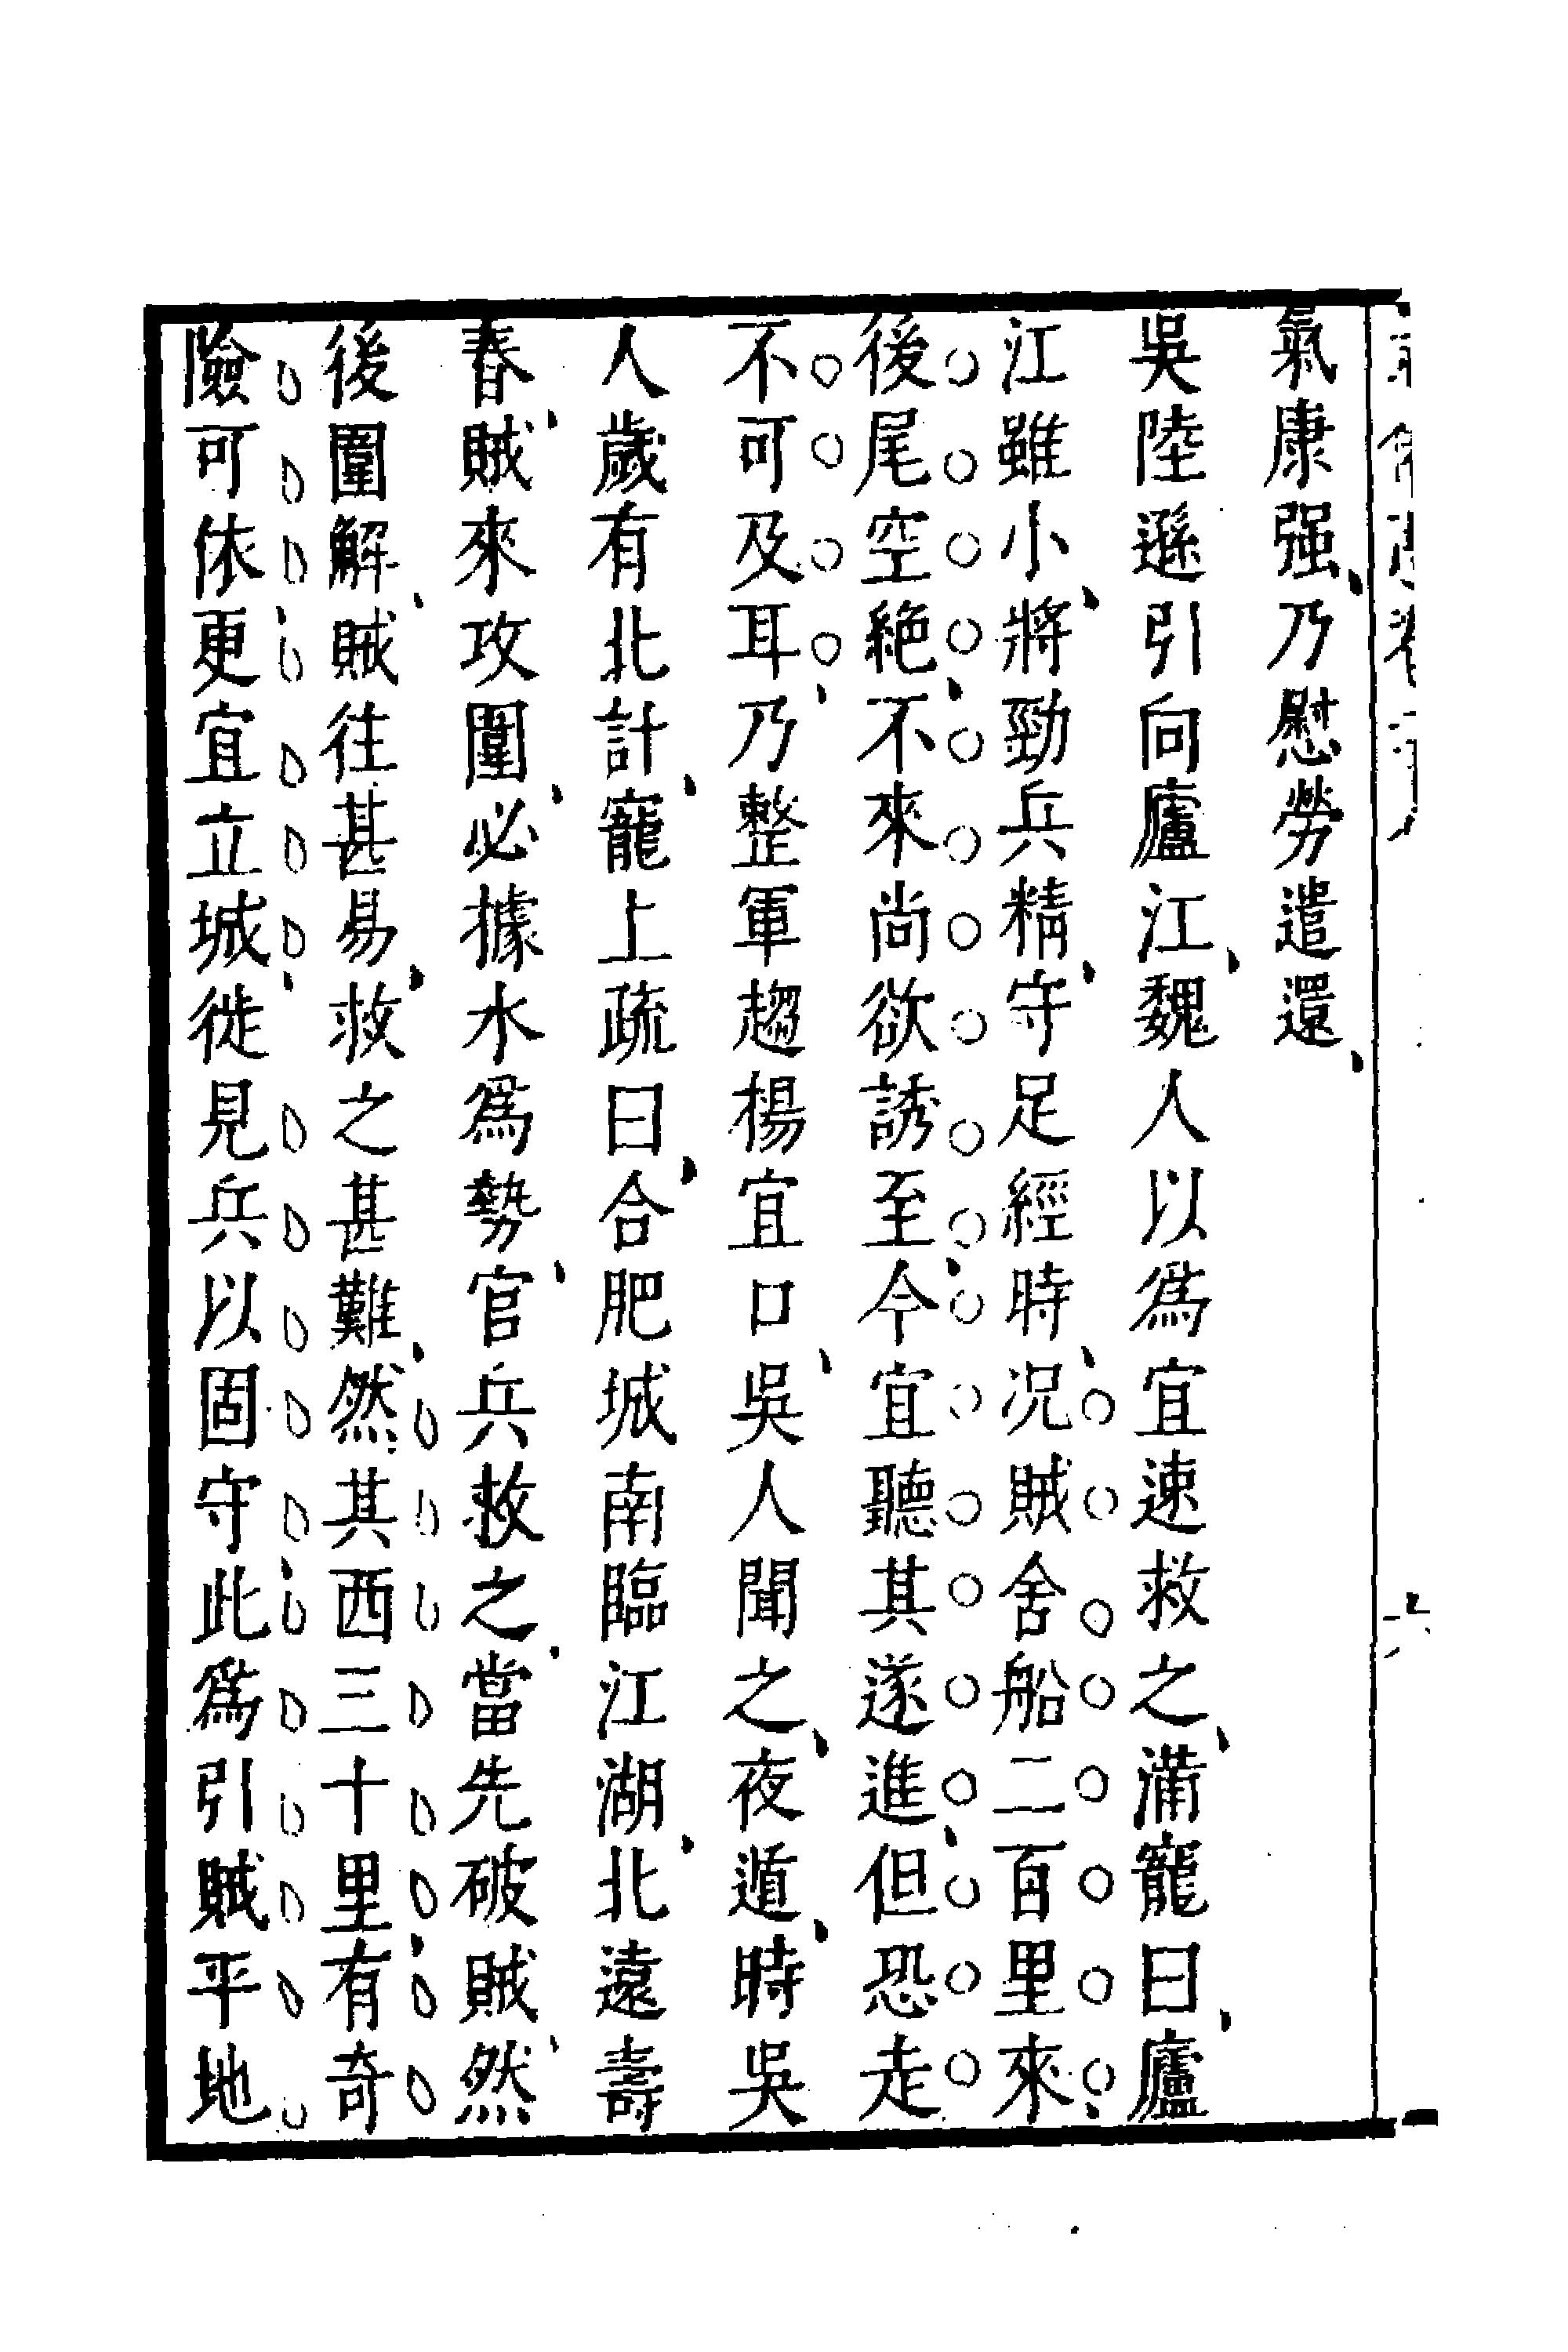 氣康强乃慰勞遣還
吳陸遜引向廬江魏人以爲宜速救之滿寵曰廬
江雖小將勁兵精守足經時况賊舍船二百里來
後尾空絶不來尚欲誘至今宜聽其遂進但恐走
不可及耳乃整軍趨楊宜口吳人聞之夜遁時吳
人歲有北計寵上疏曰合肥城南臨江湖北遠壽
春賊來攻圍必據水爲勢官兵救之當先破賊然
後圍解賊往甚易救之甚難然其西三十里有奇
險可依更宜立城徙見兵以固守此爲引賊平地